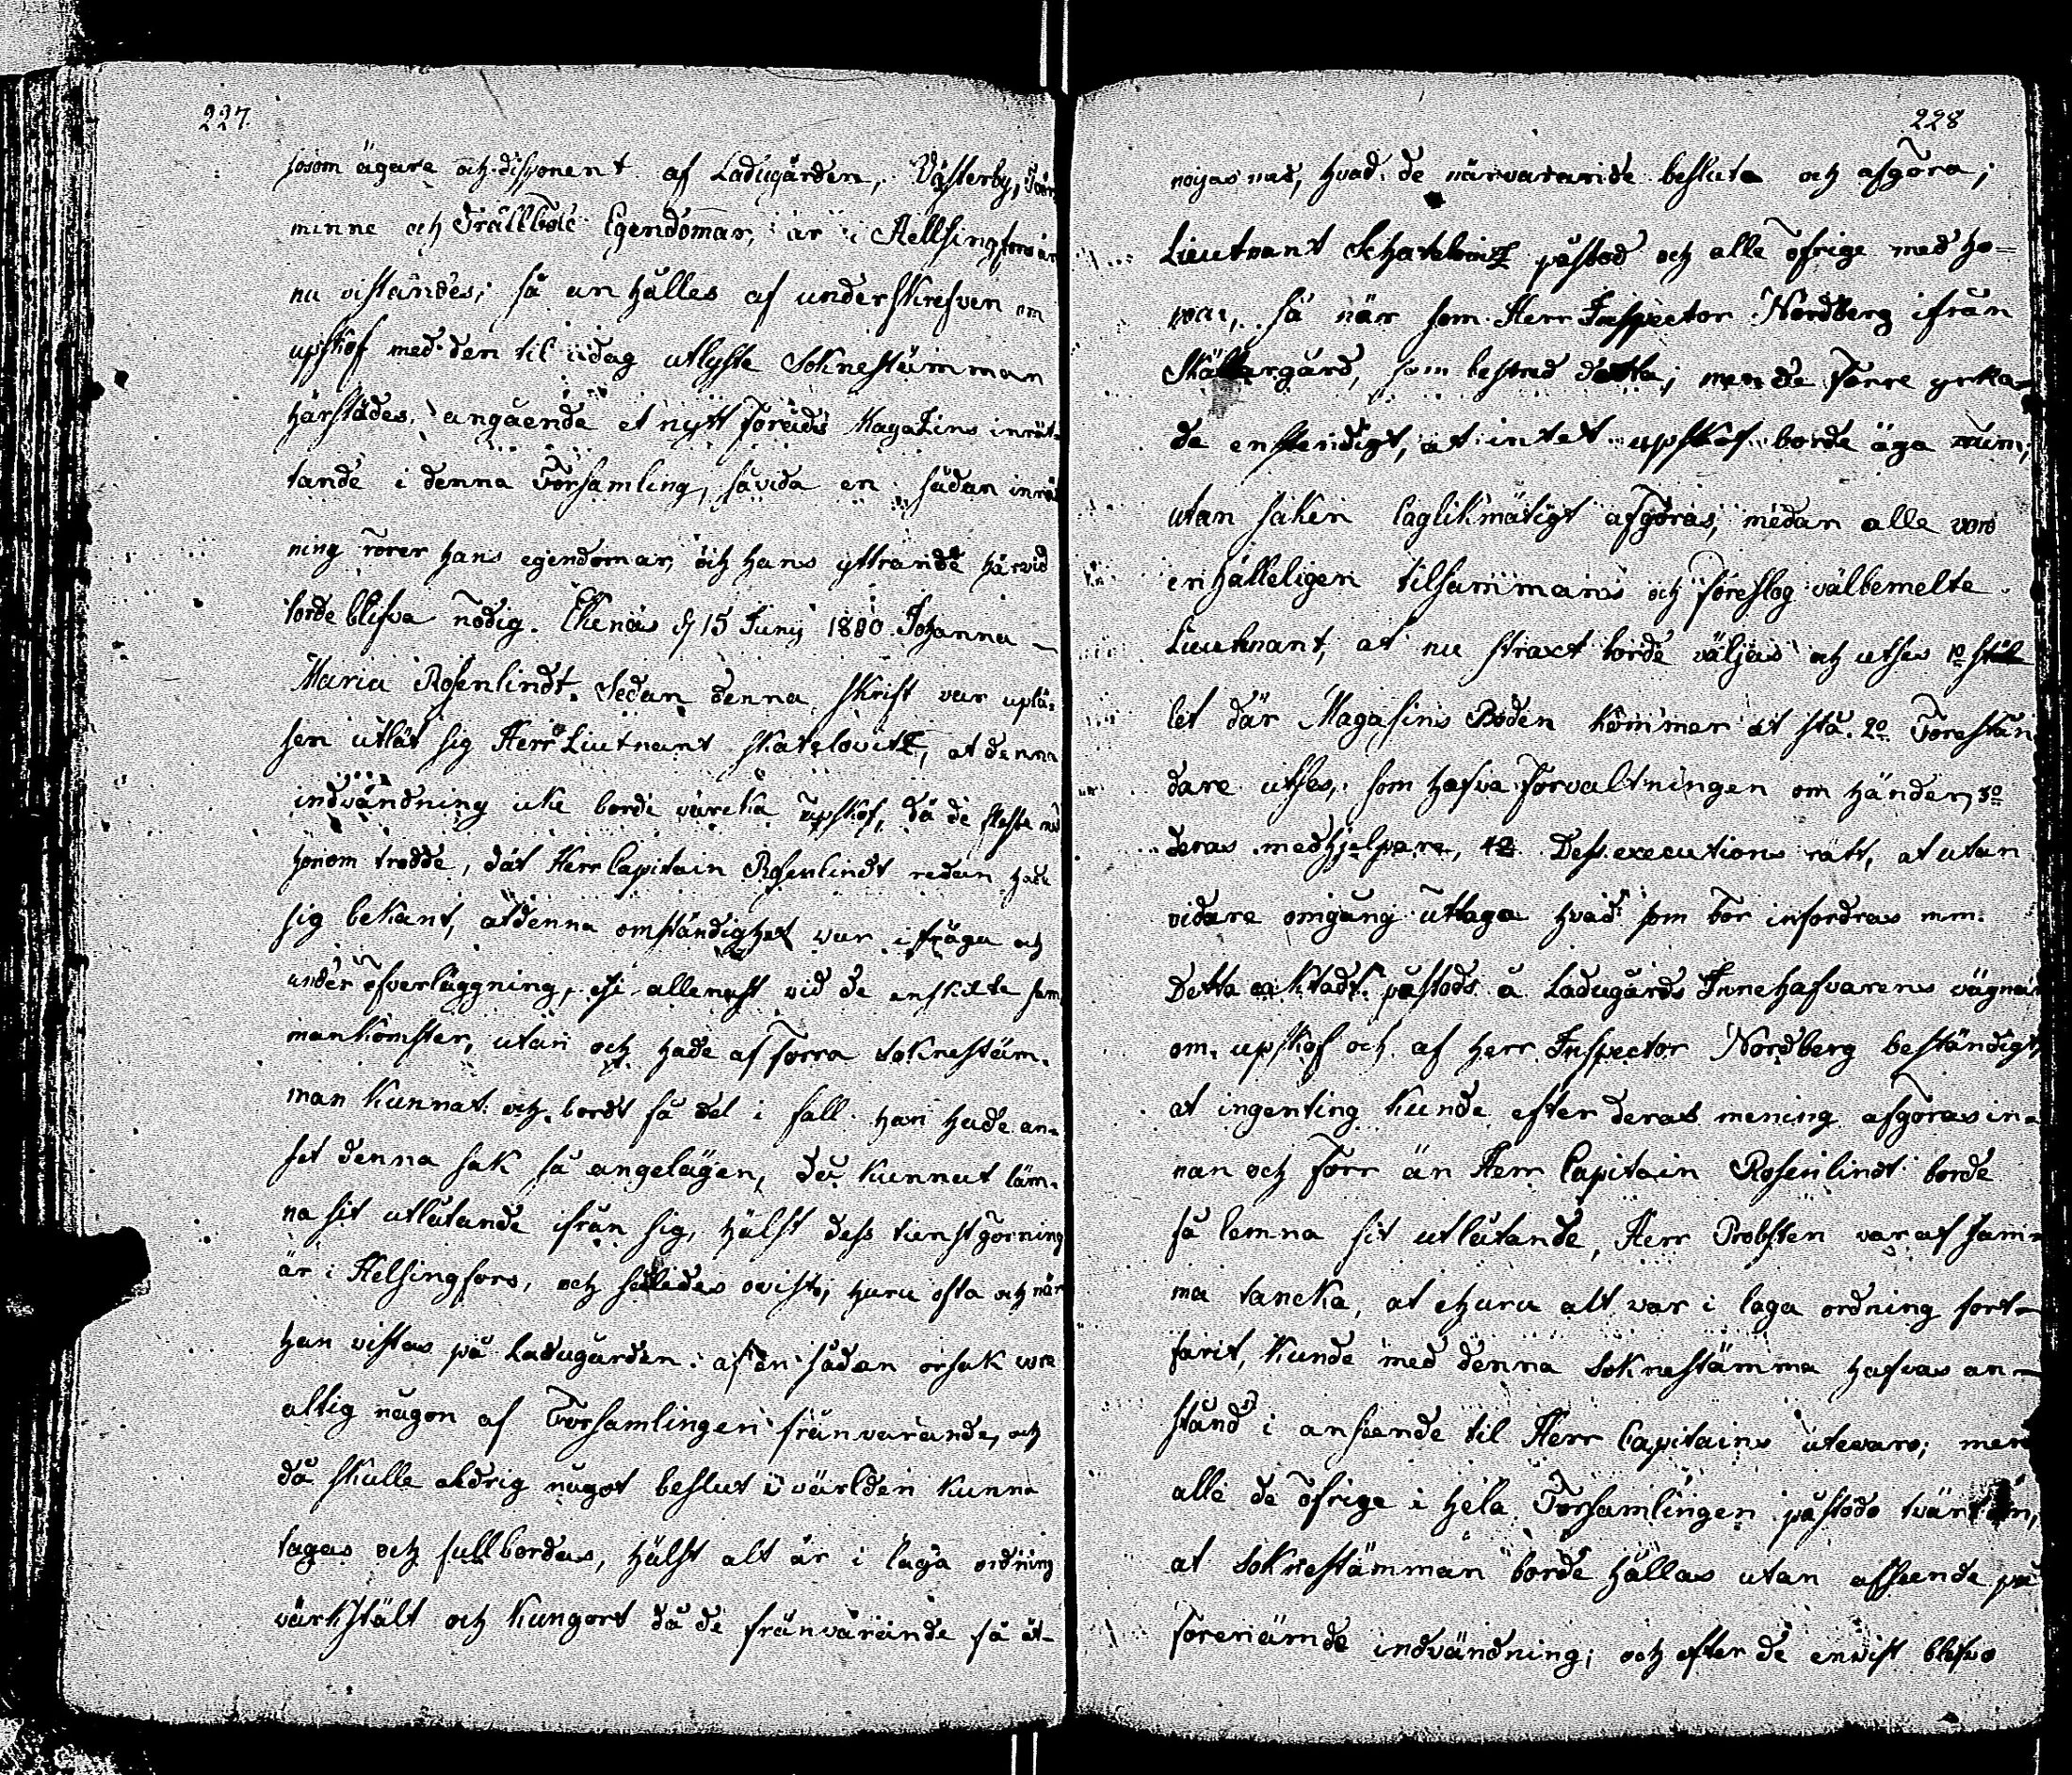 227.
sosom ägare och disponent af Ladugården, Västerby, Tvär
minne och Trällböle Egendomar, är i Hellsingfors än
nu vistandes; så anhålles af underskrefven om
upskof med den til i dag utlyste Soknestämman
härstädes, angående et nytt Föråds Magazins inrät-
tande i denna Församling, såvida en sådan inrät
ning rörer hans egendomar, och hans yttrande härvid
torde blifva nödig. Ekenäs d 15 Junij 1800 Johanna
Maria Rosenlindt. Sedan denna skrift var uplä-
sen utlät sig Herr Lieutnant Skatelovitz, at denna
indvändning icke borde värcka upskof, då de fleste med
honom trodde, dät Herr Capitain Rosenlindt redan hade
sig bekant, at denna omständighet var i fråga och
under öfverläggning, ej allenast vid de enskilte sam
mankomster, utan och hade af förra Soknestäm-
man kunnat och bordt så väl i fall han hade an-
set denna sak så angelägen, då kunnat läm-
na sit utlåtande ifrån sig, hälst dess tienstgörning
är i Helsingfors, och således ovist, huru ofta och när
han vistas på Ladugården. af en sådan orsak vore
altig någon af Församlingen frånvarande, och
då skulle aldrig något beslut i världen kunna
tagas och fullbordas, hälst alt är i laga ordning
värkstält och kungort då de frånvarande få åt-
228
nöjas med, hvad de närvarande besluta och afgöra;
Lieutnant Schatelovitz påstod och alle öfrige med ho-
nom, så när som Herr Inspector Nordberg ifrån
Skällargård, som bestred detta; men de Förre yrka-
de enständigt, at intet upskof borde äga rum,
utan saken laglikmätigt afgöras, medan alle voro
enhälleligen tilsammans och föreslog välbemelte
Lieutnant, at nu straxt borde väljas och utses 1o stäl
let där Magasins Boden kommer at stå. 2o Förestån
dare utses, som hafva förvaltningen om händer, 3o
deras medhjelpare, 4o Dess executions rätt, at utan
vidare omgång uttaga hvad som bör infordras m.m.
Detta oaktadt påstods å Ladugårds Innehafvarens vägnar
om upskof och af Herr Inspector Nordberg beständigt,
at ingenting kunde efter deras mening afgöras in-
nan och förr än Herr Capitain Rosenlindt borde
få lemna sit utlåtande, Herr Probsten var af sam-
ma tancka, at ehuru alt var i laga ordning fort-
farit, kunde med denna Soknestämma hafvas an-
stånd i anseende til Herr Capitains utevaro; men
alle de öfrige i hela Församlingen påstodo tvärtom,
at Soknestämman borde hållas utan afseende på
förenämde indvändning; och efter de envist blefvo